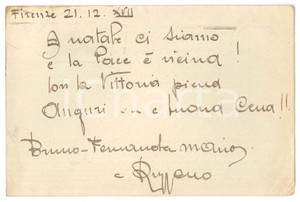 Firenze 21.12.XVII
A natale ci siamo
e la Pace è vicina!
Con la Vittoria piena
Auguri... e buona Cena!!
Bruno - Fernanda Mario
e Ruggero